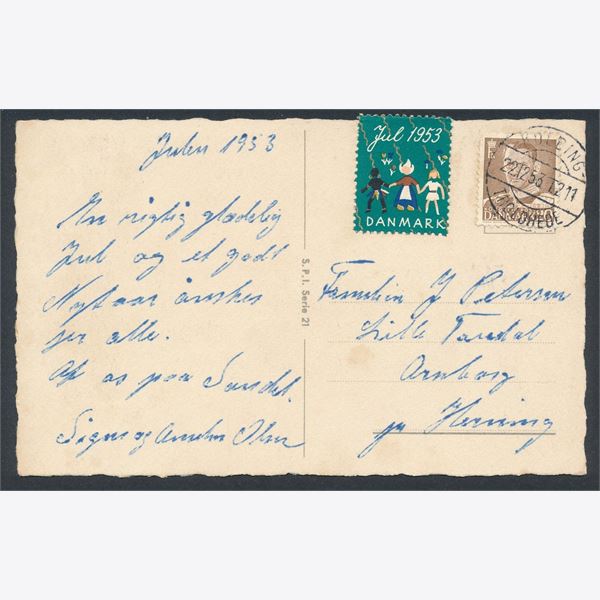 Julen 1953
En rigtig glædelig
Jul og et godt
Nytaar ønskes
jer alle.
Af os paa Sandet.
Signe og Olsen
S. P. I. Serie 21
Jul 1953
DANMARK
22.12.53
DANMARK
Familien J Petersen
Lille Tanderup
Arnborg
pr Herning